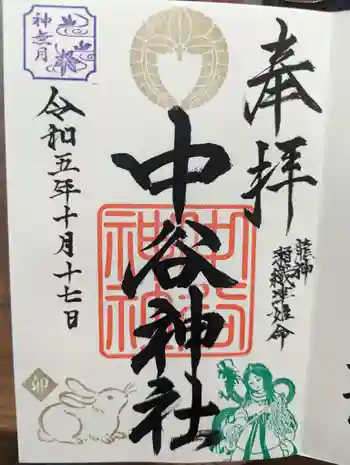 奉拝
龍神
瀬織津姫命
中谷神社
神無月
令和五年十月十七日
卯